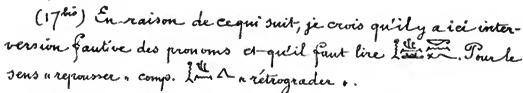 (17bis) En raison de ce qui suit, je crois qu'il y a ici inter-
version fautive des pronoms et qu'il faut lire . Pour le
sens « repousser » comp. « rétrograder ».